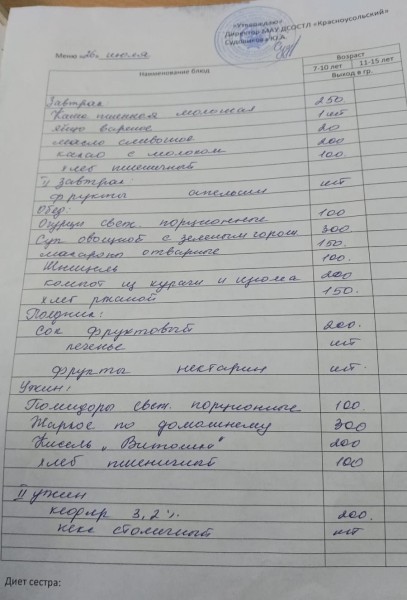 «Утверждаю»
Директор МАУ ДСОСТЛ «Красноусольский»
Судейманов Ю.А.
Меню «26» июля
Наименование блюд Возраст
7-10 лет 11-15 лет
Выход в гр.
Завтрак
Каша пшенная молочная 250
яйцо вареное 1 шт
масло сливочное 20
какао с молоком 200
хлеб пшеничный 100.
II завтрак:
фрукты апельсин шт
Обед:
Огурцы свеж порционные 100
Суп овощной с зеленым горош 300
макароны отварные 150.
Шницель 100.
компот из кураги и изюма 200
хлеб ржаной 150.
Полдник:
Сок фруктовый 200.
печенье шт
фрукты нектарин шт.
Ужин:
Помидоры свеж. порционные 100.
Жаркое по домашнему 300
Кисель „Витошка" 200
хлеб пшеничный 100
II ужин
кефир 3,2% 200.
кекс столичный шт
Диет сестра: